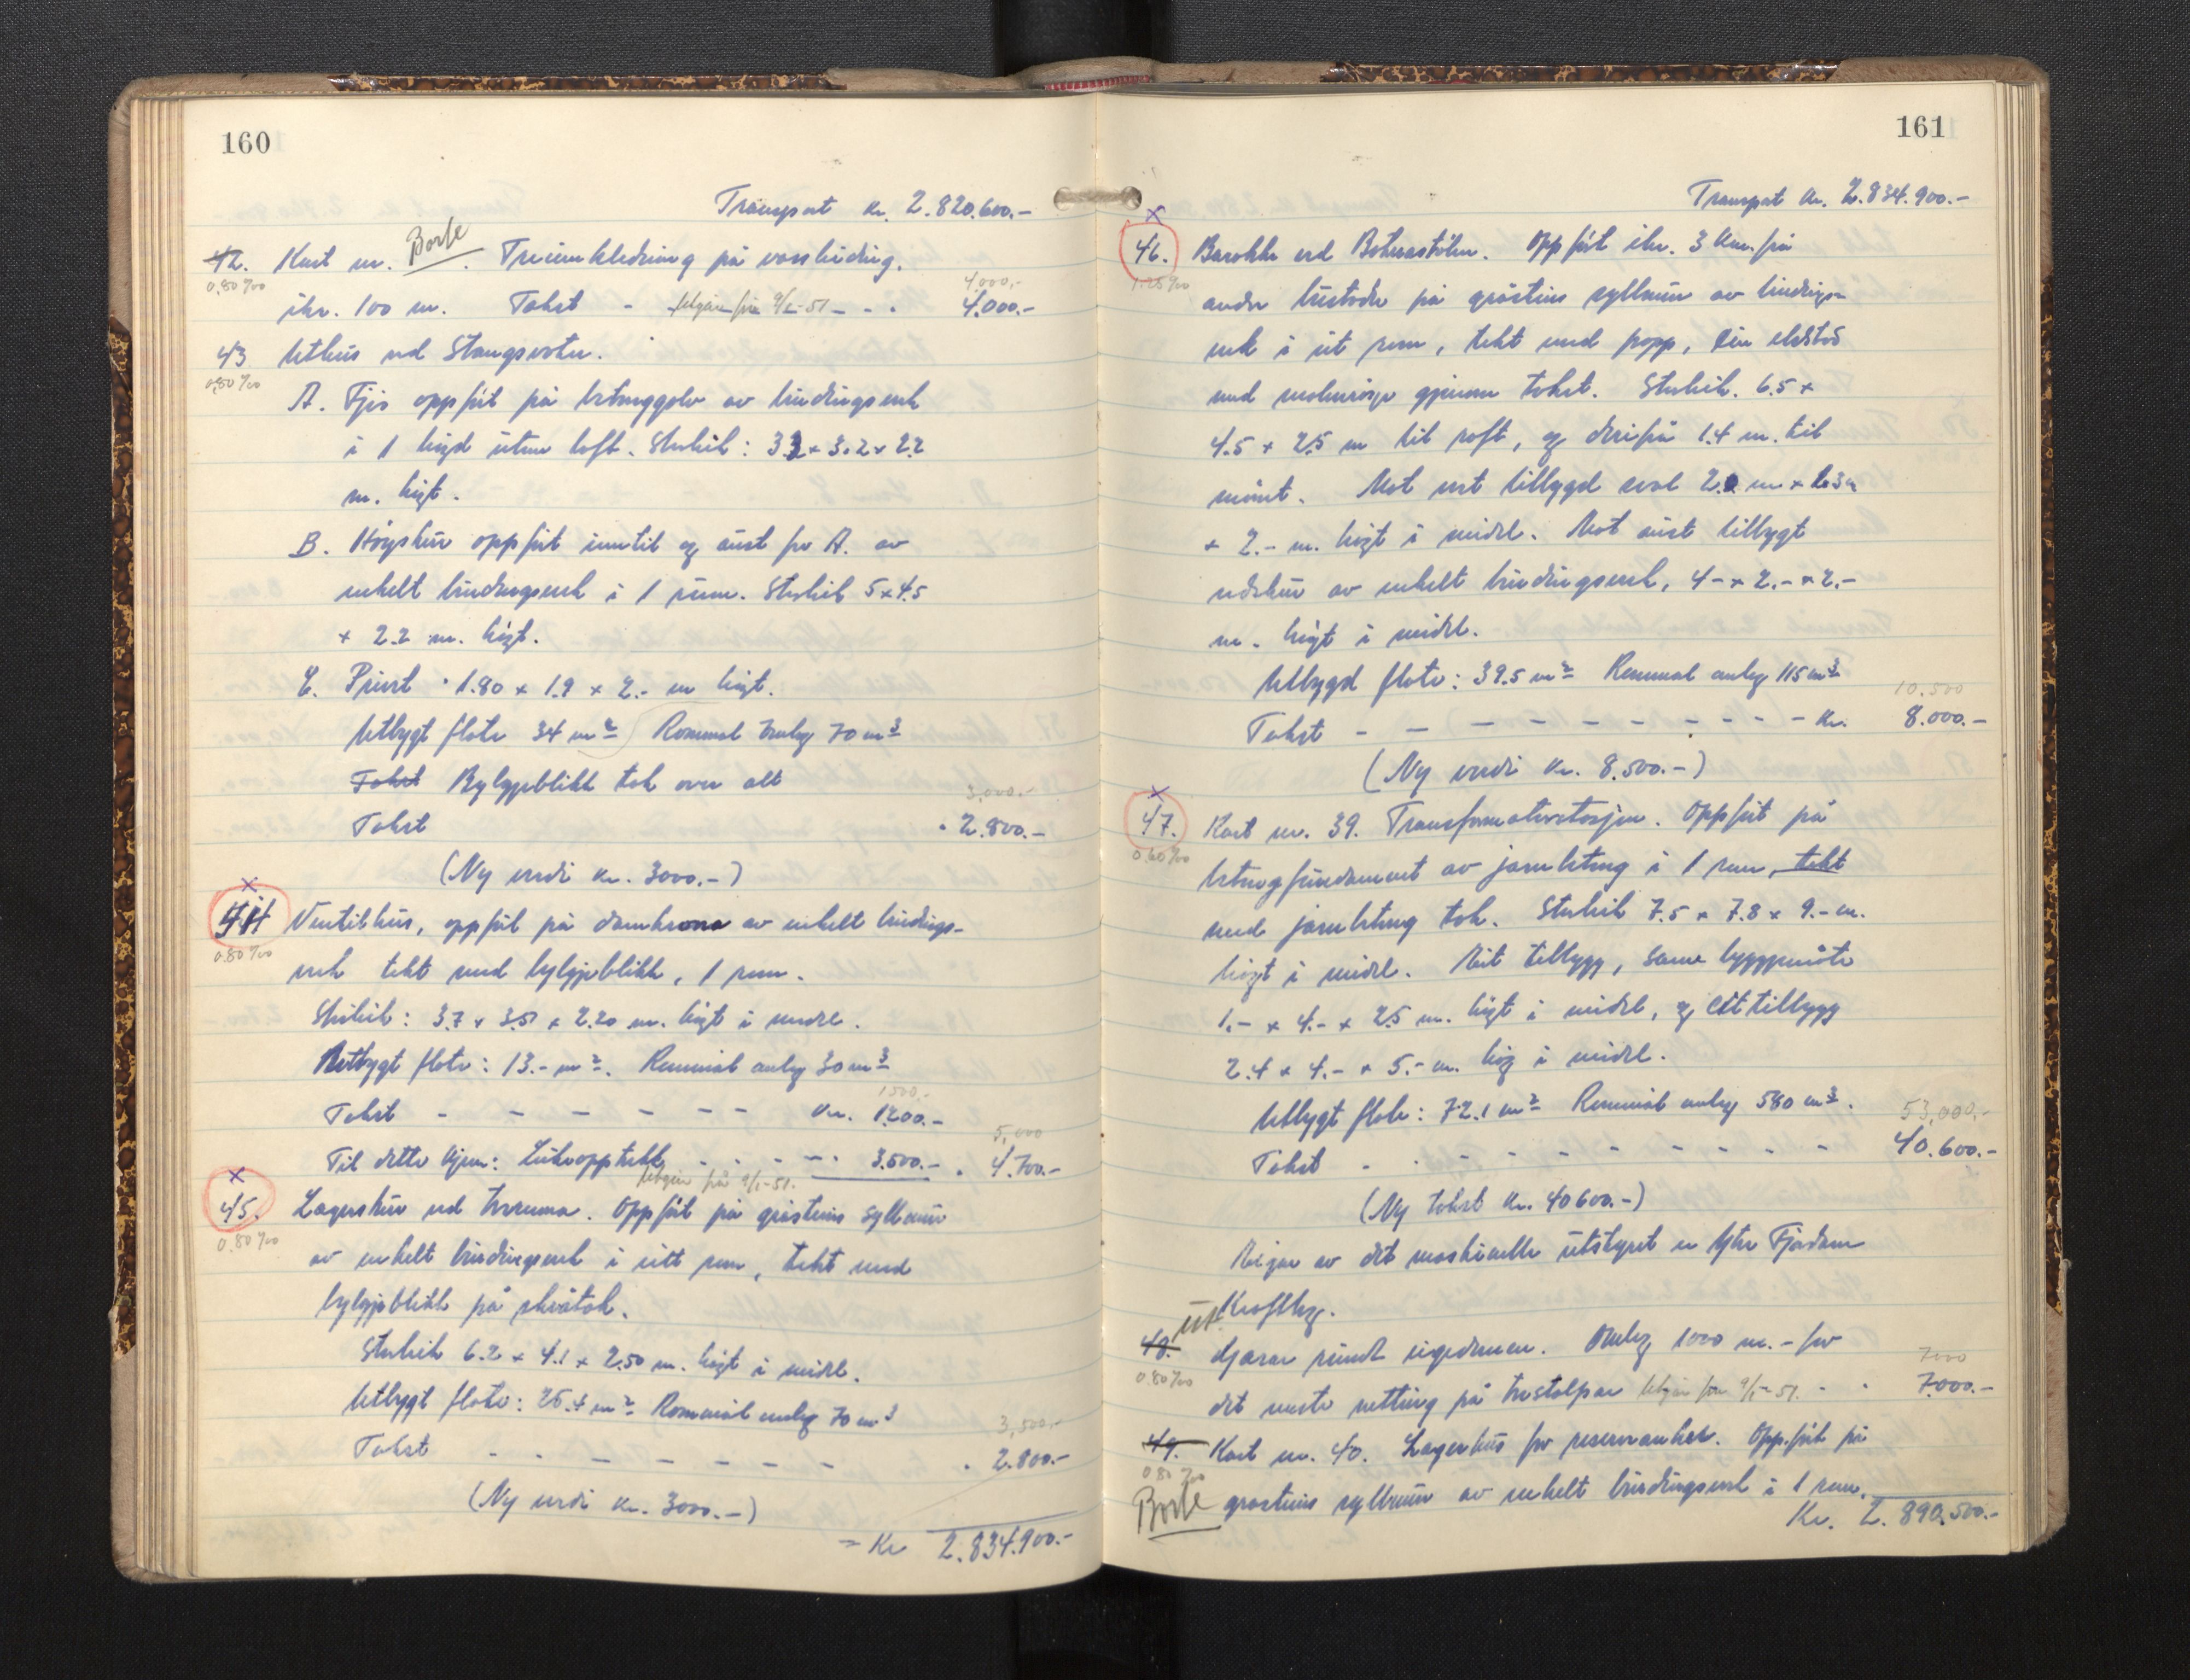 160
Transport kr. 2.820.600.-
42. Kart nr. Borte. Treinnkledning på vassleidning.
0.80 ‰
4000.-
ikr. 100 m. Takst - utgår frå 9/1-51 - - . 4.000.-
43 Uthus ved Stangsvatn.
0.80 ‰
A. Fjøs oppført på betonggolv av bindingsverk
i 1 høgd uten loft. Storleik: 3.2 x 3.2 x 2.2
m. høgt.
B. Høyskur oppført inntil og aust for A. av
enkelt bindingsverk i 1 rum. Storleik 5 x 4.5
x 2.2 m. høgt.
C. Privet 1.80 x 1.9 x 2.- m høgt.
Utbygt flate 34 m² Rommål omlag 70 m³
Takst Bylgjeblikk tak over alt
3,000.-
Takst . 2.800.-
(Ny verdi kr. 3000.-)
x
44 Ventilhus, oppført på damkrona av enkelt bindings-
0.80 ‰
verk tekt med bylgjeblikk, 1 rum.
Storleik: 3.7 x 3.51 x 2.20 m. høgt i midel.
Utbygt flate: 13.- m². Rommål omlag 30 m³
1500.-
Takst - - - - - - - kr. 1200.-
5,000
Til dette kjem: Lukeopptrekk - - - - 3.500.- . 4.700.-
utgår frå 9/1-51.
x
45. Lagerskur ved . Oppført på gråsteins syllmur
0.80 ‰
av enkelt bindingsverk i eitt rum, tekt med
bylgjeblikk på skråtak.
Storleik 6.2 x 4.1 x 2.50 m. høgt i midel.
Utbygt flate: 25.4 m² Rommål omlag 70 m³
3,500.-
Takst - - - - - - - - . 2.800.-
(Ny verdi kr. 3000.-)
= Kr 2.834.900.-
161
Transport kr. 2.834.900.-
x
46. Barakke ved Botnastølen. Oppført ikr. 3 km. frå
1.25 ‰
andre hus på gråsteins syllmur av bindings-
verk i eit rom, tekt med papp, ein eldstad
med gjennom taket. Storleik. 6.5 x
4.5 x 2.5 m til raft, og derifrå 1.4 m. til
møne. Mot vest tilbygd sval 2.0 m x
x 2.- m. høgt i midel. Mot aust tilbygt
vedskur av enkelt bindingsverk, 4.- x 2.- x 2.-
m. høgt i midel.
Utbygd flate: 39.5 m² Rommål omlag 115 m³
10.500
Takst - - - - - - - - - - - kr. 8.000.-
(Ny verdi kr. 8.500.-)
x
47. Kart nr. 39. Transformatorstasjon. Oppført på
0.60 ‰
betongfundament av jarnbetong i 1 rum, tekt
med jarnbetong tak. Storleik 7.5 x 7.8 x 9.- m.
høgt i midel. Eit tilbygg, same byggjemåte
1.- x 4.- x 2.5 m. høgt i midel, og eit tilbygg
2.4 x 4.- x 5.- m. høg i midel.
Utbygt flate: 72.1 m² Rommål omlag 580 m³.
53,000.-
Takst . . - - - - - - - - - 40.600.-
(Ny takst kr. 40600.-)
Eigar av det maskinelle utstyret er Ytre Fjordane
Kraftlag.
Ut
48. Gjerar rundt eigedomen. Omlag 1000 m. - for
0.80 ‰
7000
det meste netting på trestolpar utgår frå 9/1-51. - . 7.000.-
49. Kart nr. 40. Lagerhus for reserveanker. Oppført på
0.80 ‰
Borte gråsteins syllmur av enkelt bindingsverk i 1 rum.
Kr. 2.890.500.-